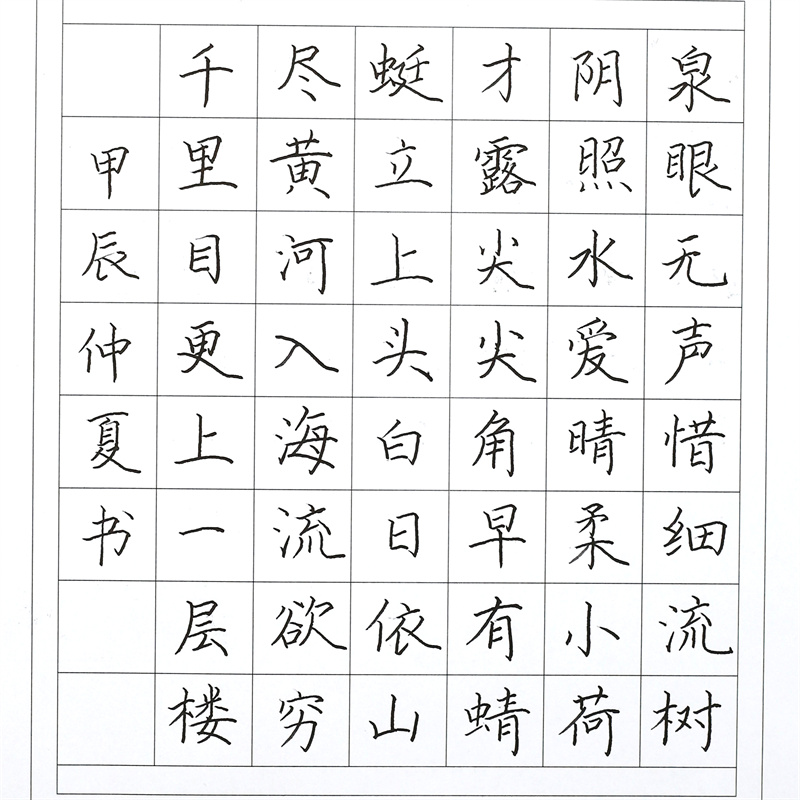 泉眼无声惜细流树
阴照水爱晴柔小荷
才露尖尖角早有蜻
蜓立上头白日依山
尽黄河入海流欲穷
千里目更上一层楼
甲辰仲夏书